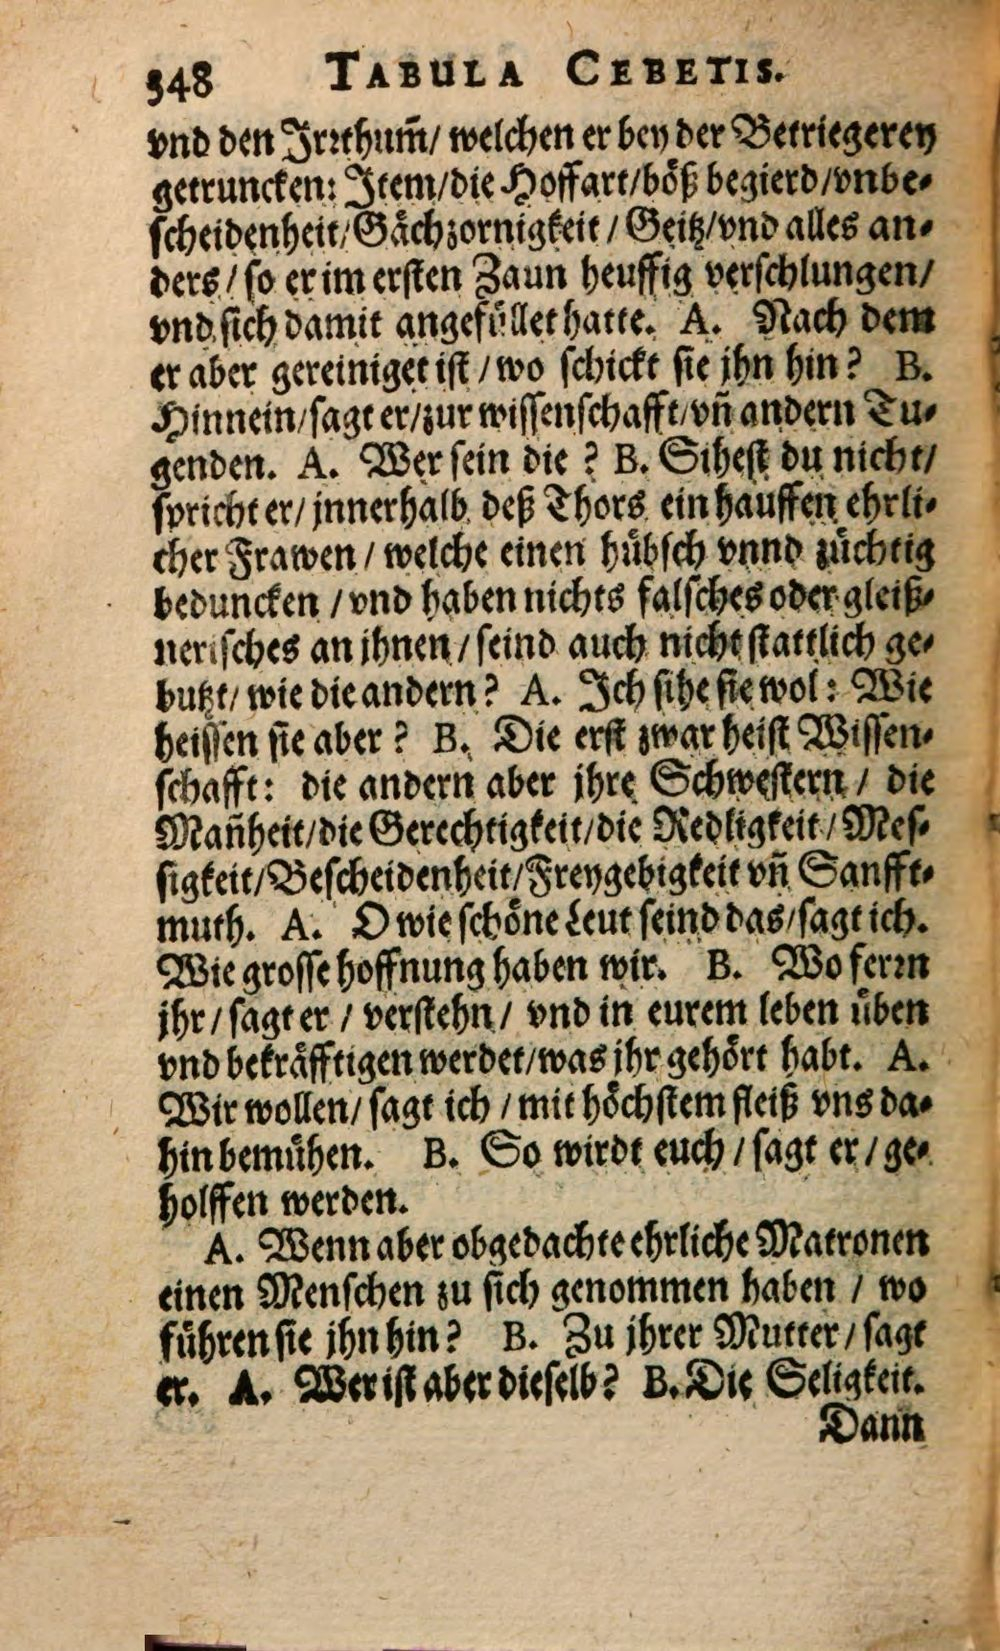 348 TABULA CEBETIS.
vnd den Jrꝛthum̄/ welchen er bey der Betriegerey
getruncken: Jtem/die Hoffart/böß begierd/vnbe-
scheidenheit/Gächzornigkeit / Geitz/vnd alles an-
ders / so er im ersten Zaun heuffig verschlungen/
vnd sich damit angefüllet hatte. A. Nach dem
er aber gereiniget ist / wo schickt sie jhn hin? B.
Hinnein/sagt er/zur wissenschafft/vñ andern Tu-
genden. A. Wer sein die ? B. Sihest du nicht/
spricht er/ jnnerhalb deß Thors ein hauffen ehrli-
cher Frawen / welche einen hübsch vnnd züchtig
beduncken / vnd haben nichts falsches oder gleiß-
nerisches an jhnen / seind auch nicht stattlich ge-
butzt/ wie die andern? A. Jch sihe sie wol: Wie
heissen sie aber ? B. Die erst zwar heist Wissen-
schafft: die andern aber jhre Schwestern / die
Mañheit/die Gerechtigkeit/die Redligkeit / Mes-
sigkeit/Bescheidenheit/Freygebigkeit vñ Sanfft-
muth. A. O wie schöne Leut seind das/sagt ich.
Wie grosse hoffnung haben wir. B. Wo ferꝛn
jhr / sagt er / verstehn / vnd in eurem leben üben
vnd bekräfftigen werdet/was jhr gehört habt. A.
Wir wollen/ sagt ich / mit höchstem fleiß vns da-
hin bemühen. B. So wirdt euch / sagt er / ge-
holffen werden.
A. Wenn aber obgedachte ehrliche Matronen
einen Menschen zu sich genommen haben / wo
führen sie jhn hin? B. Zu jhrer Mutter / sagt
er. A. Wer ist aber dieselb? B. Die Seligkeit.
Dann